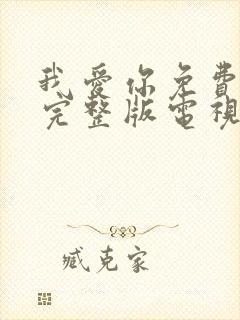 我愛你免費
完整版電視
臧克家